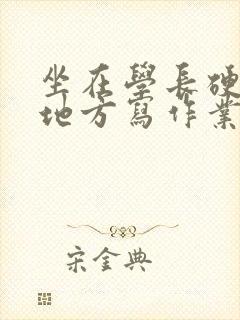 坐在學長硬
地方寫作業
宋金典